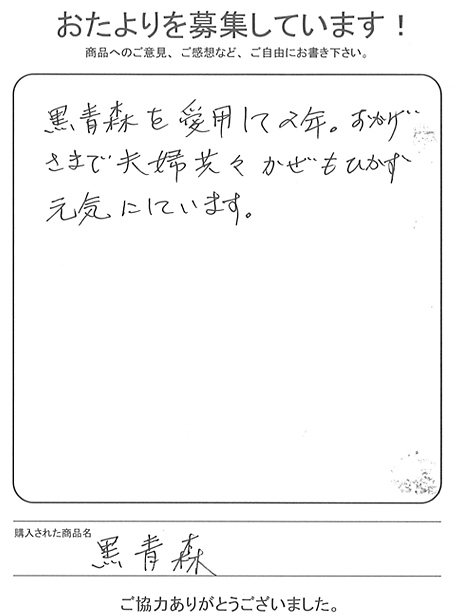 おたよりを募集しています！
商品へのご意見、ご感想など、ご自由にお書き下さい。
黒青森を愛用して2年。おかげ
さまで夫婦共々かぜもひかず
元気にしています。
購入された商品名
黒青森
ご協力ありがとうございました。